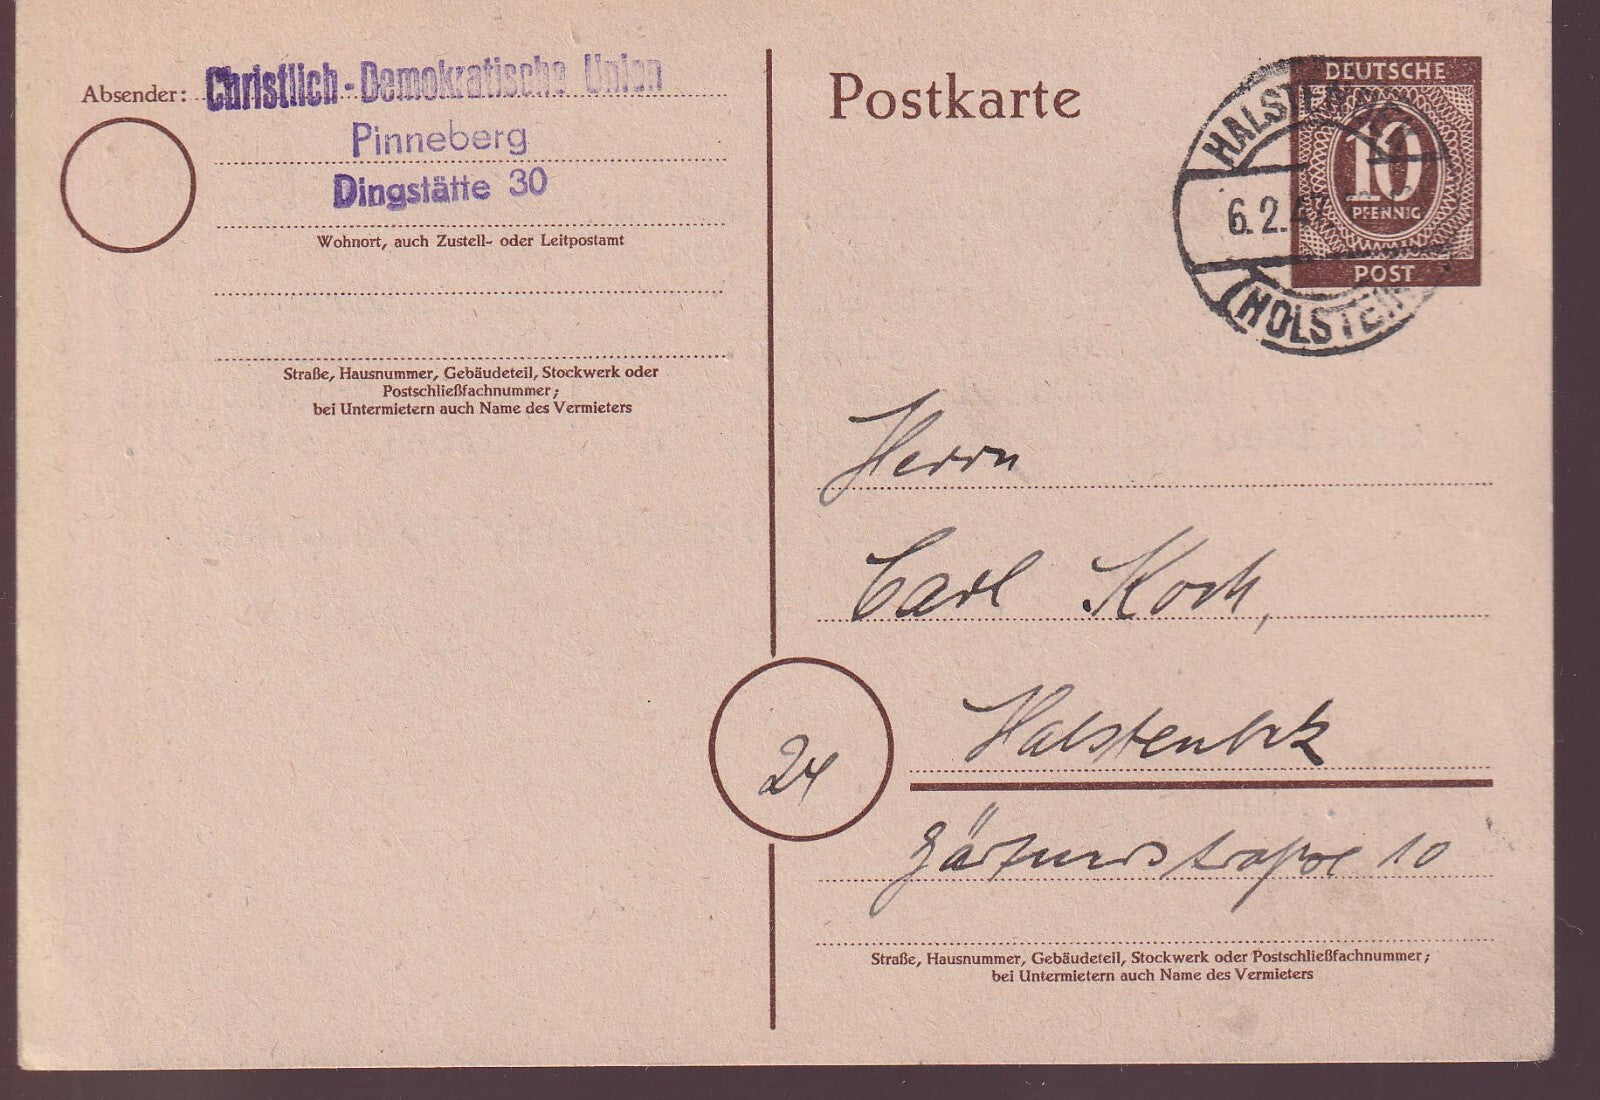 Absender: Christlich-Demokratische Union
Pinneberg
Dingstätte 30
Wohnort, auch Zustell- oder Leitpostamt
Straße, Hausnummer, Gebäudeteil, Stockwerk oder
Postschließfachnummer;
bei Untermietern auch Name des Vermieters
Postkarte
DEUTSCHE
10
PFENNIG
POST
HALSTENBEK
6.2.47
(HOLSTEIN)
Herrn
Carl Koch,
24
Halstenbek
Gärtnerstraße 10
Straße, Hausnummer, Gebäudeteil, Stockwerk oder Postschließfachnummer;
bei Untermietern auch Name des Vermieters